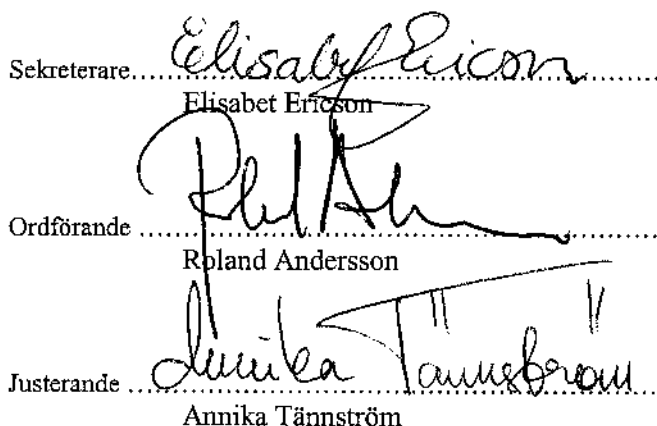 Sekreterare.....Elisabet Ericson.....
Elisabet Ericson
Ordförande.....Roland A.....
Roland Andersson
Justerande.....Annika Tännström.....
Annika Tännström